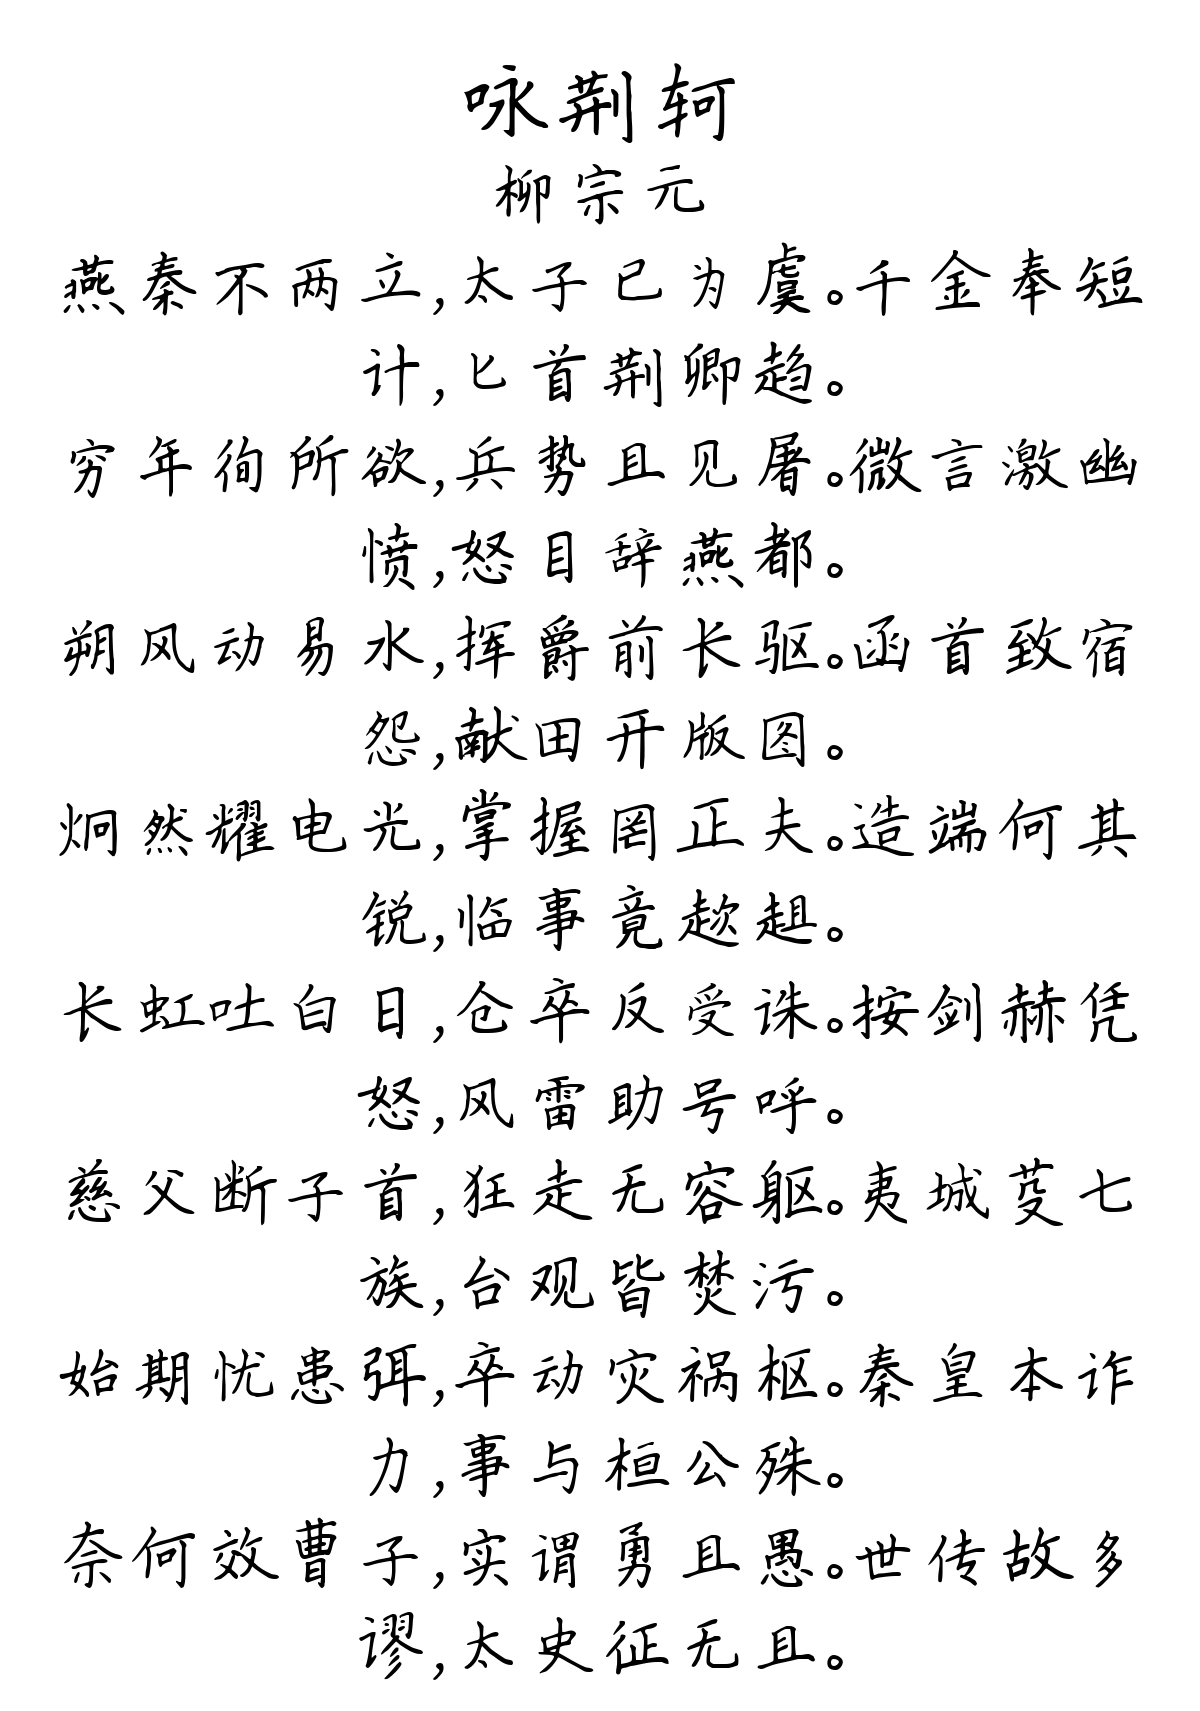 咏荆轲
柳宗元
燕秦不两立,太子已为虞。千金奉短
计,匕首荆卿趋。
穷年徇所欲,兵势且见屠。微言激幽
愤,怒目辞燕都。
朔风动易水,挥爵前长驱。函首致宿
怨,献田开版图。
炯然耀电光,掌握罔正夫。造端何其
锐,临事竟趑趄。
长虹吐白日,仓卒反受诛。按剑赫凭
怒,风雷助号呼。
慈父断子首,狂走无容躯。夷城芟七
族,台观皆焚污。
始期忧患弭,卒动灾祸枢。秦皇本诈
力,事与桓公殊。
奈何效曹子,实谓勇且愚。世传故多
谬,太史征无且。